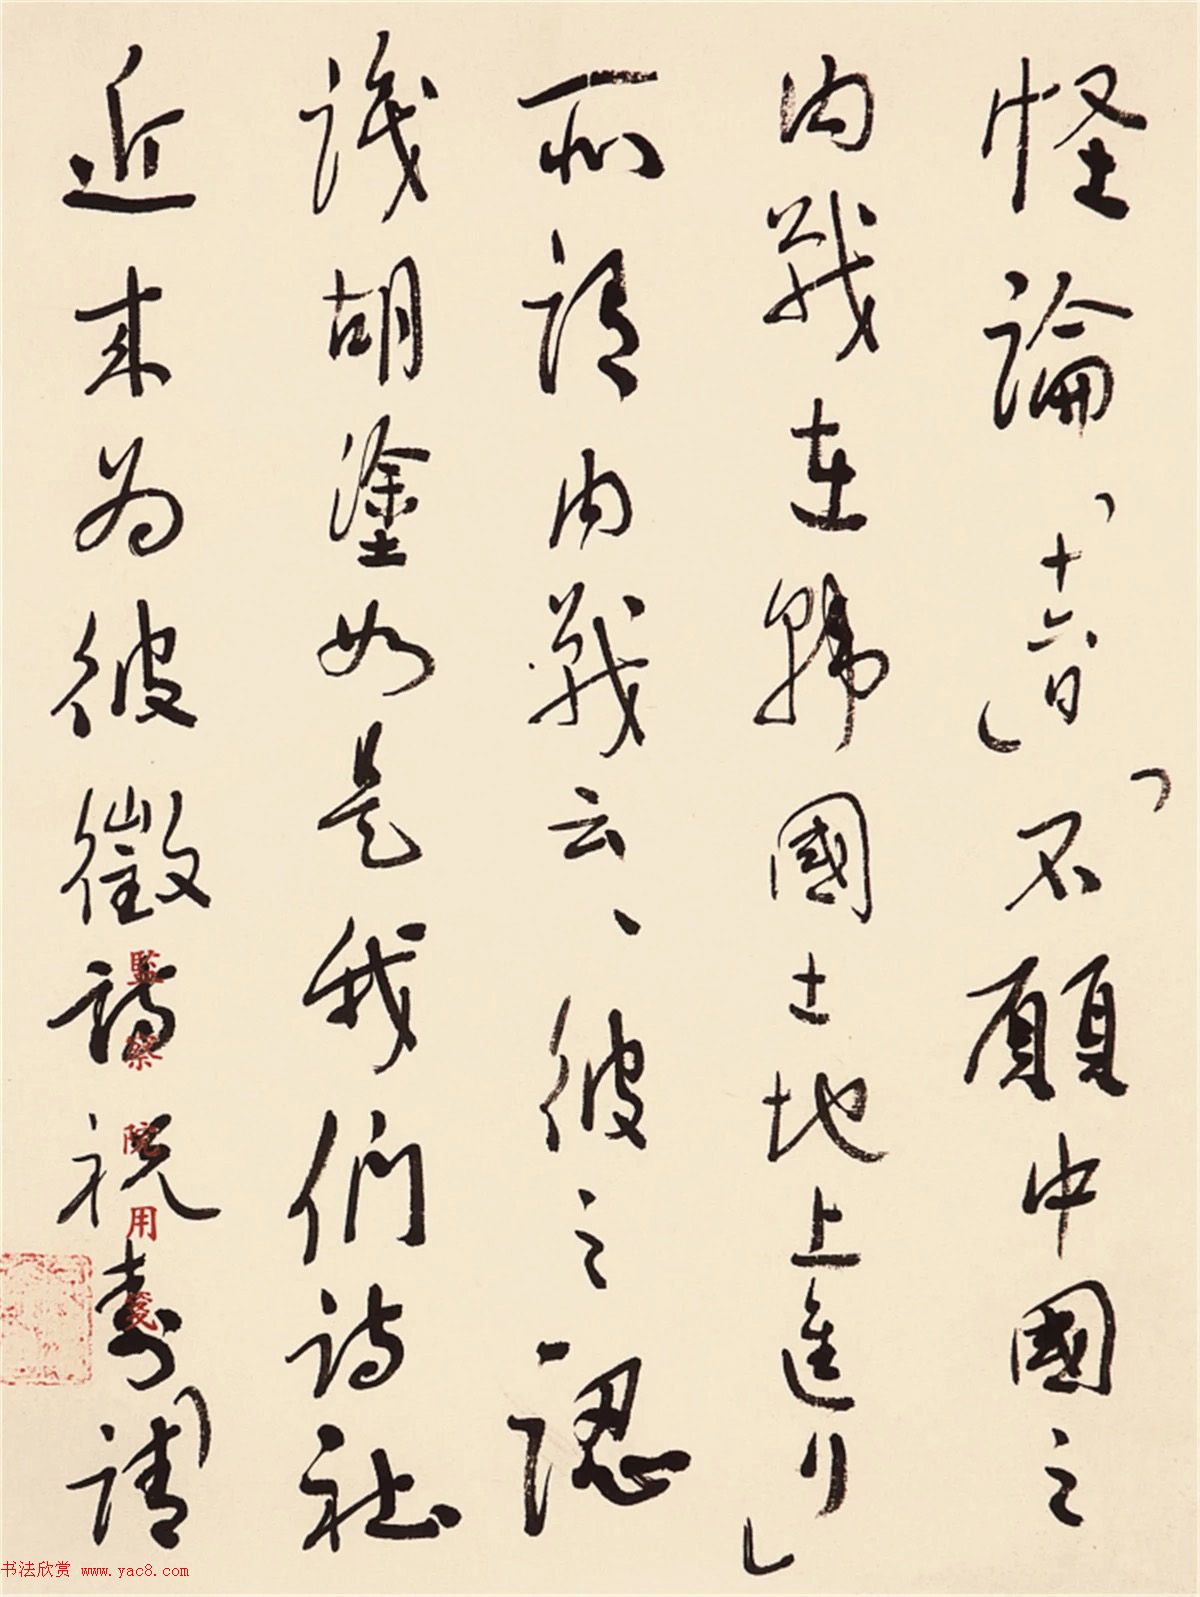 怪論「十六日」「不願中國之
内戰在韓國土地上進行」
所謂内戰云、彼之認
識胡塗如是我們詩社
近来為彼徵詩祝壽請
監察院用箋
书法欣赏 www.yac8.com